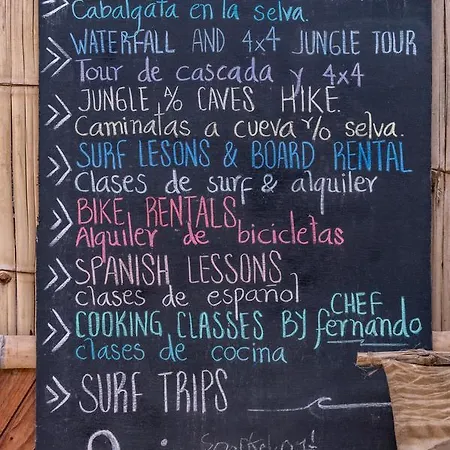 Cabalgata en la selva.
WATERFALL AND 4x4 JUNGLE TOUR
Tour de cascada y 4x4
JUNGLE % CAVES HIKE.
Caminatas a cueva % selva.
SURF LESONS & BOARD RENTAL
Clases de surf & alquiler
BIKE RENTALS
Alquiler de bicicletas
SPANISH LESSONS
clases de español
COOKING CLASSES BY CHEF fernando
clases de cocina
SURF TRIPS